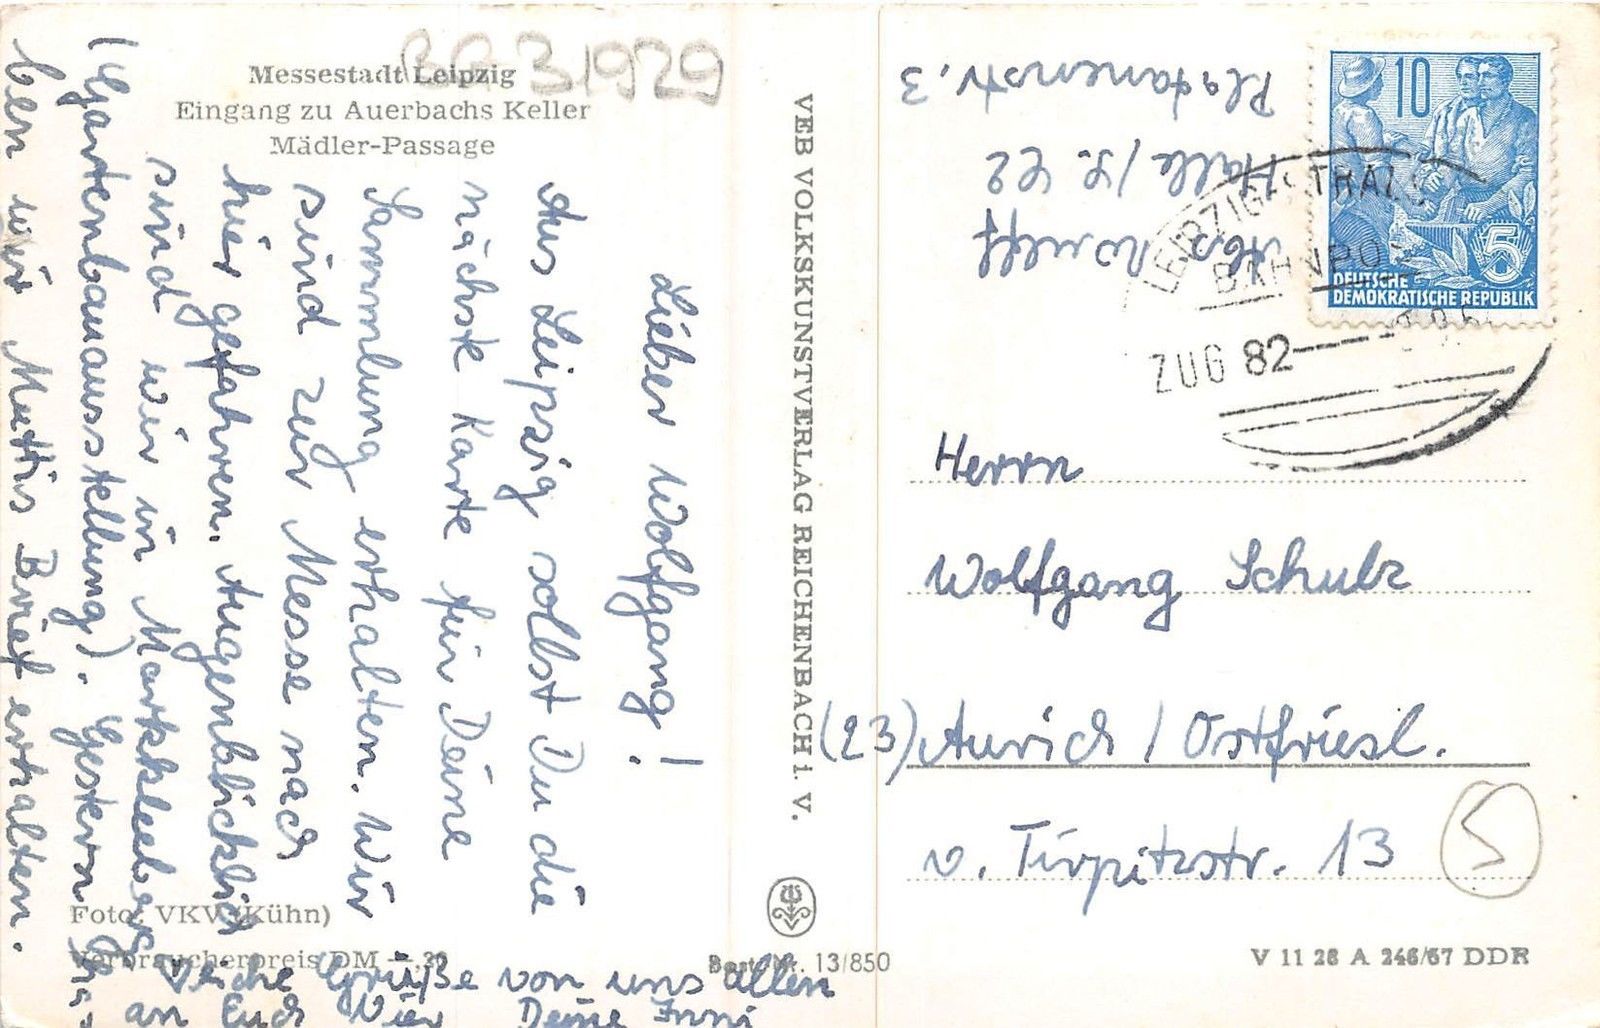 Messestadt Leipzig
Eingang zu Auerbachs Keller
Mädler-Passage
BB 31929
Lieber Wolfgang!
Aus Leipzig sollst Du die
nächste Karte für Deine
Sammlung erhalten. Wir
sind zur Messe nach
hier gefahren. Augenblicklich
sind wir in Markkleeberg
(Gartenbauausstellung). Gestern ha-
ben wir Muttis Brief erhalten.
Grüße von uns allen
an Euch Vier Deine
Foto: VKV (Kühn)
Verbraucherpreis DM —,20
Best.-Nr. 13/850
VEB VOLKSKUNSTVERLAG REICHENBACH i. V.
Abs.
Halle/S.
Platanenstr. 3
10
5
DEUTSCHE
DEMOKRATISCHE REPUBLIK
LEIPZIG
BAHNPOST
ZUG 82
Herrn
Wolfgang Schulz
(23) Aurich / Ostfriesl.
v. Tirpitzstr. 13
S
V 11 28 A 246/57 DDR